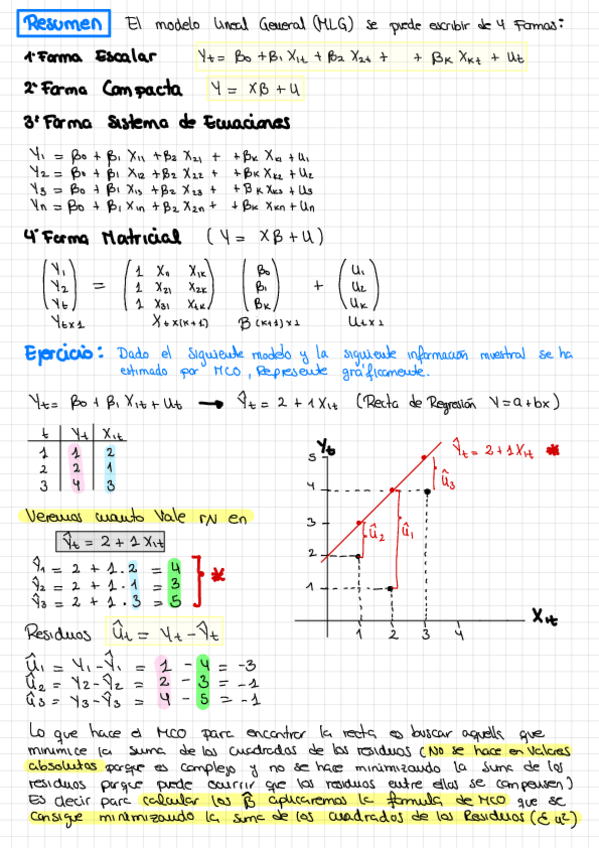 Resumen El modelo Lineal General (MLG) se puede escribir de 4 Formas:
1ª Forma Escalar Yt = β0 + β1 X1t + β2 X2t + + βK XKt + Ut
2ª Forma Compacta Y = Xβ + U
3ª Forma Sistema de Ecuaciones
Y1 = β0 + β1 X11 + β2 X21 + + βK XK1 + U1
Y2 = β0 + β1 X12 + β2 X22 + + βK XK2 + U2
Y3 = β0 + β1 X13 + β2 X23 + + βK XK3 + U3
Yn = β0 + β1 X1n + β2 X2n + + βK XKn + Un
4ª Forma Matricial (Y = Xβ + U)
Y1 1 X11 X1K β0 U1
Y2 = 1 X21 X2K β1 + U2
Yt 1 X31 XtK βK UK
Ytx1 Xtx(K+1) β(K+1)x1 Utx1
Ejercicio: Dado el siguiente modelo y la siguiente información muestral se ha
estimado por MCO, Represente gráficamente.
Yt = β0 + β1 X1t + Ut → Ŷt = 2 + 1X1t (Recta de Regresión Y = a + bx)
t Yt X1t
1 1 2
2 2 1
3 4 3
Veremos cuanto Vale en
Ŷt = 2 + 1X1t
Ŷ1 = 2 + 1 · 2 = 4
Ŷ2 = 2 + 1 · 1 = 3 *
Ŷ3 = 2 + 1 · 3 = 5
Residuos Ût = Yt - Ŷt
Û1 = Y1 - Ŷ1 = 1 - 4 = -3
Û2 = Y2 - Ŷ2 = 2 - 3 = -1
Û3 = Y3 - Ŷ3 = 4 - 5 = -1
Yt
Ŷt = 2 + 1X1t *
5
4
3
2
1
û3
û2
û1
1 2 3 4
X1t
Lo que hace el MCO para encontrar la recta es buscar aquella que
minimice la suma de los cuadrados de los residuos (No se hace en valores
absolutos porque es complejo y no se hace minimizando la suma de los
residuos porque puede ocurrir que los residuos entre ellos se compensen)
Es decir para calcular los β̂ aplicaremos la formula de MCO que se
consigue minimizando la suma de los cuadrados de los Residuos (Σ u²)